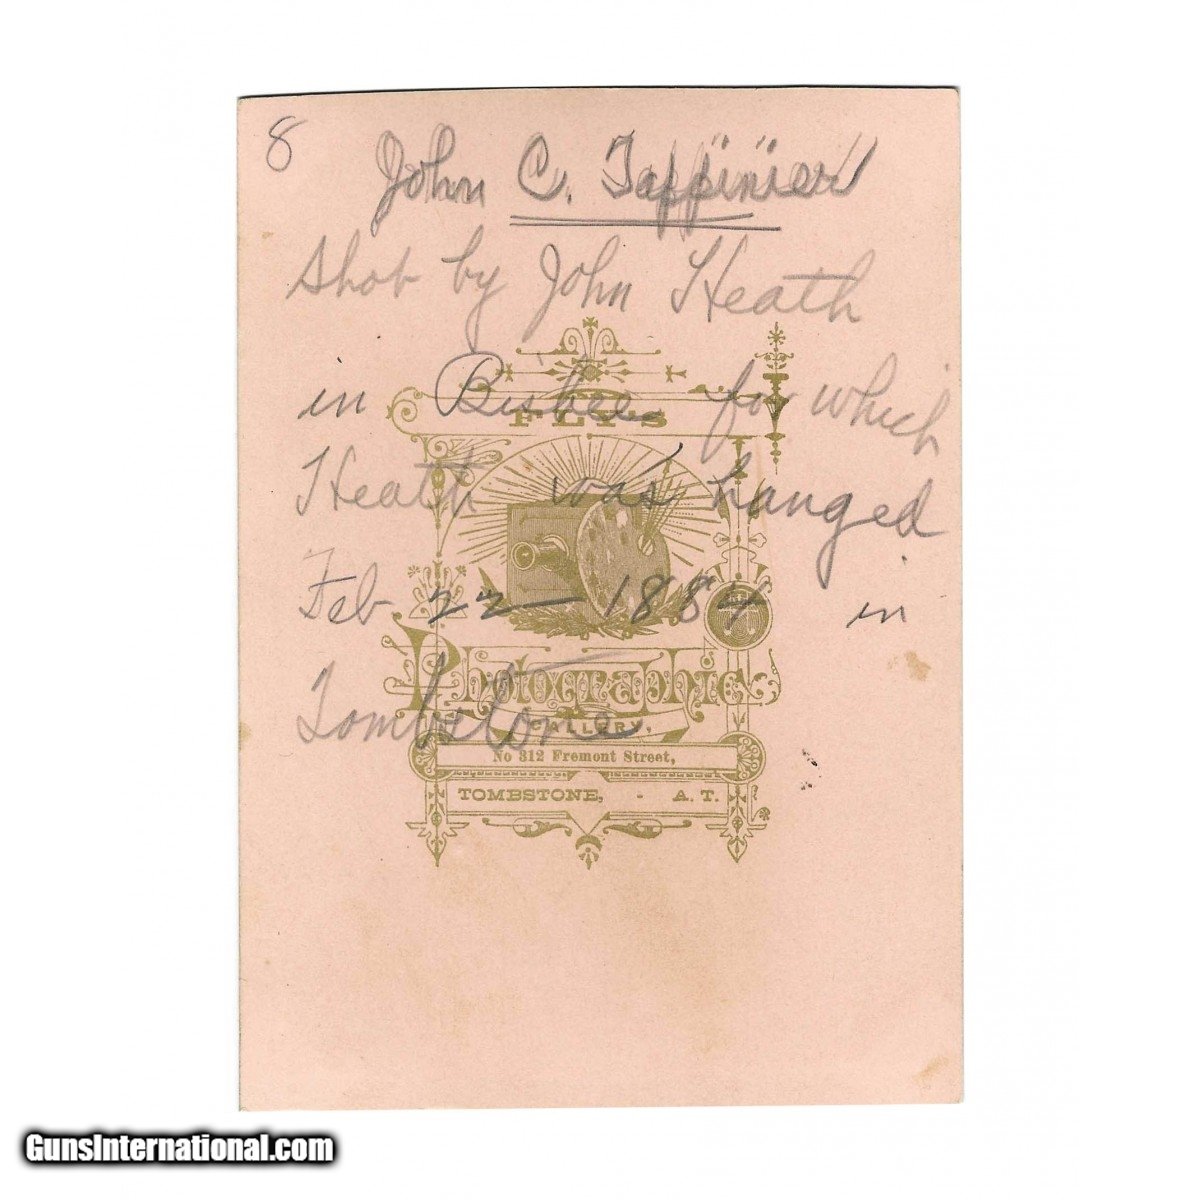 8
John C. Tappinier
shot by John Heath
in Bisbee for which
FLY'S
Heath was hanged
Feb 22 - 1884 in
Photographic
Tombstone
GALLERY,
No 312 Fremont Street,
TOMBSTONE, - A. T.
GunsInternational.com